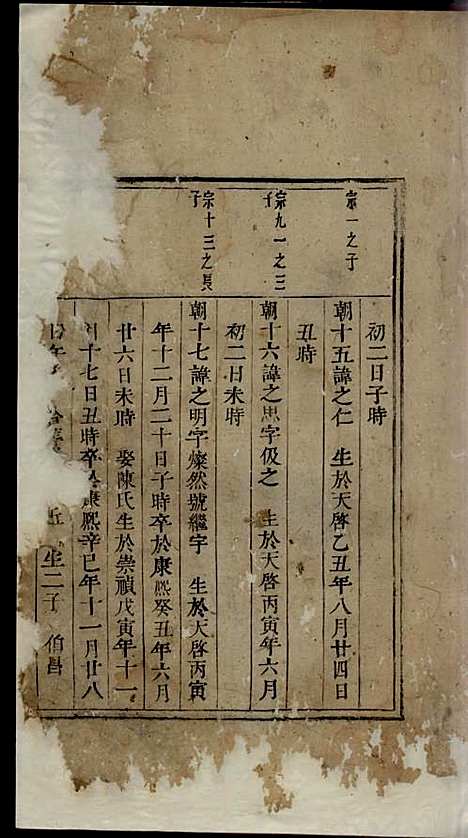 初二日子時
宗一之子
朝十五諱之仁 生於天啓乙丑年八月廿四日
丑時
宗九一之三子
朝十六諱之思字伋之 生於天啓丙寅年六月
初二日未時
宗十三之長子
朝十七諱之明字燦然號繼宇 生於天啓丙寅
年十二月二十日子時卒於康熙癸丑年六月
廿六日未時 娶陳氏生於崇禎戊寅年十一
十七日丑時卒於康熙辛巳年十一月廿八
丘 生二子 伯昌